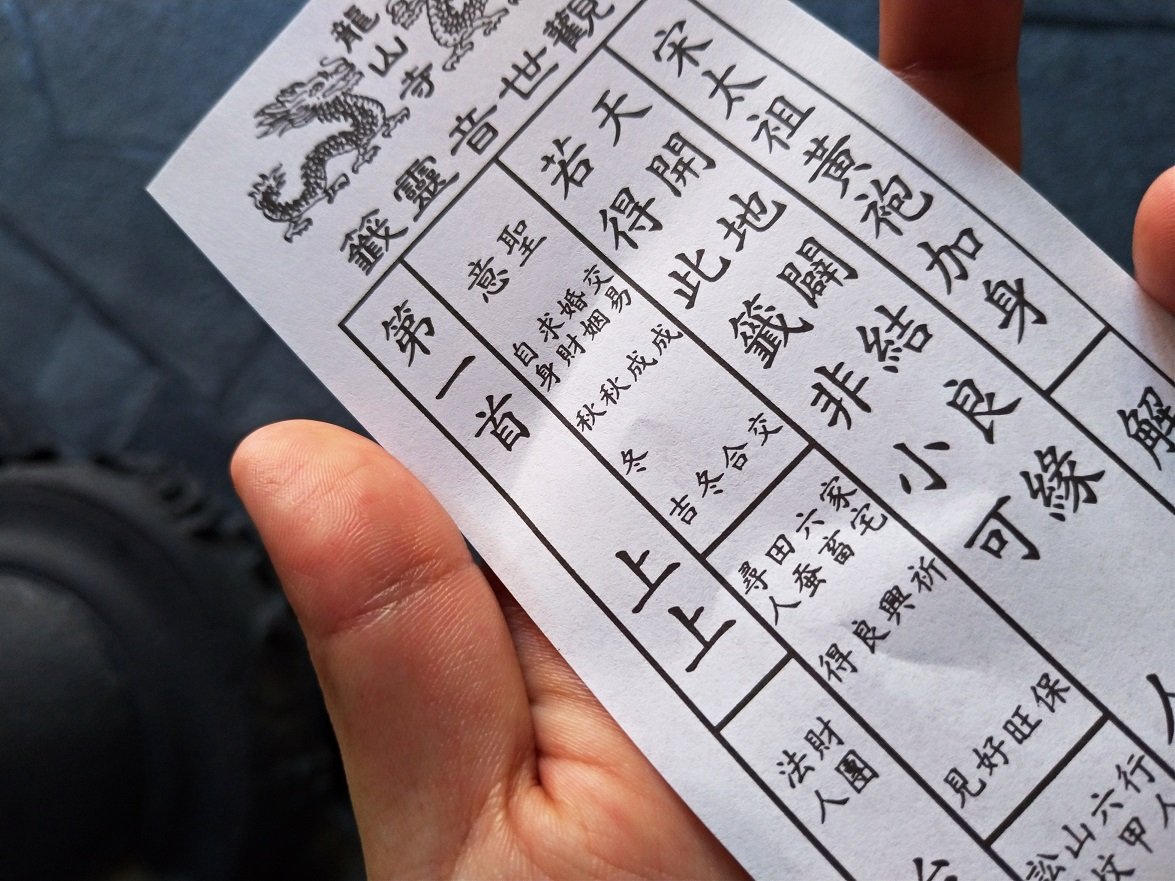 龍山寺
觀世音靈籤
宋太祖黃袍加身
解
天開地闢結良緣
若得此籤非小可
聖意
交易 成交
婚姻 成合
求財 秋冬
自身 秋冬吉
家宅 祈保
六畜 興旺
田蚕 良好
尋人 得見
行人
六甲
山坟
訟
第一首 上上
財團
法人